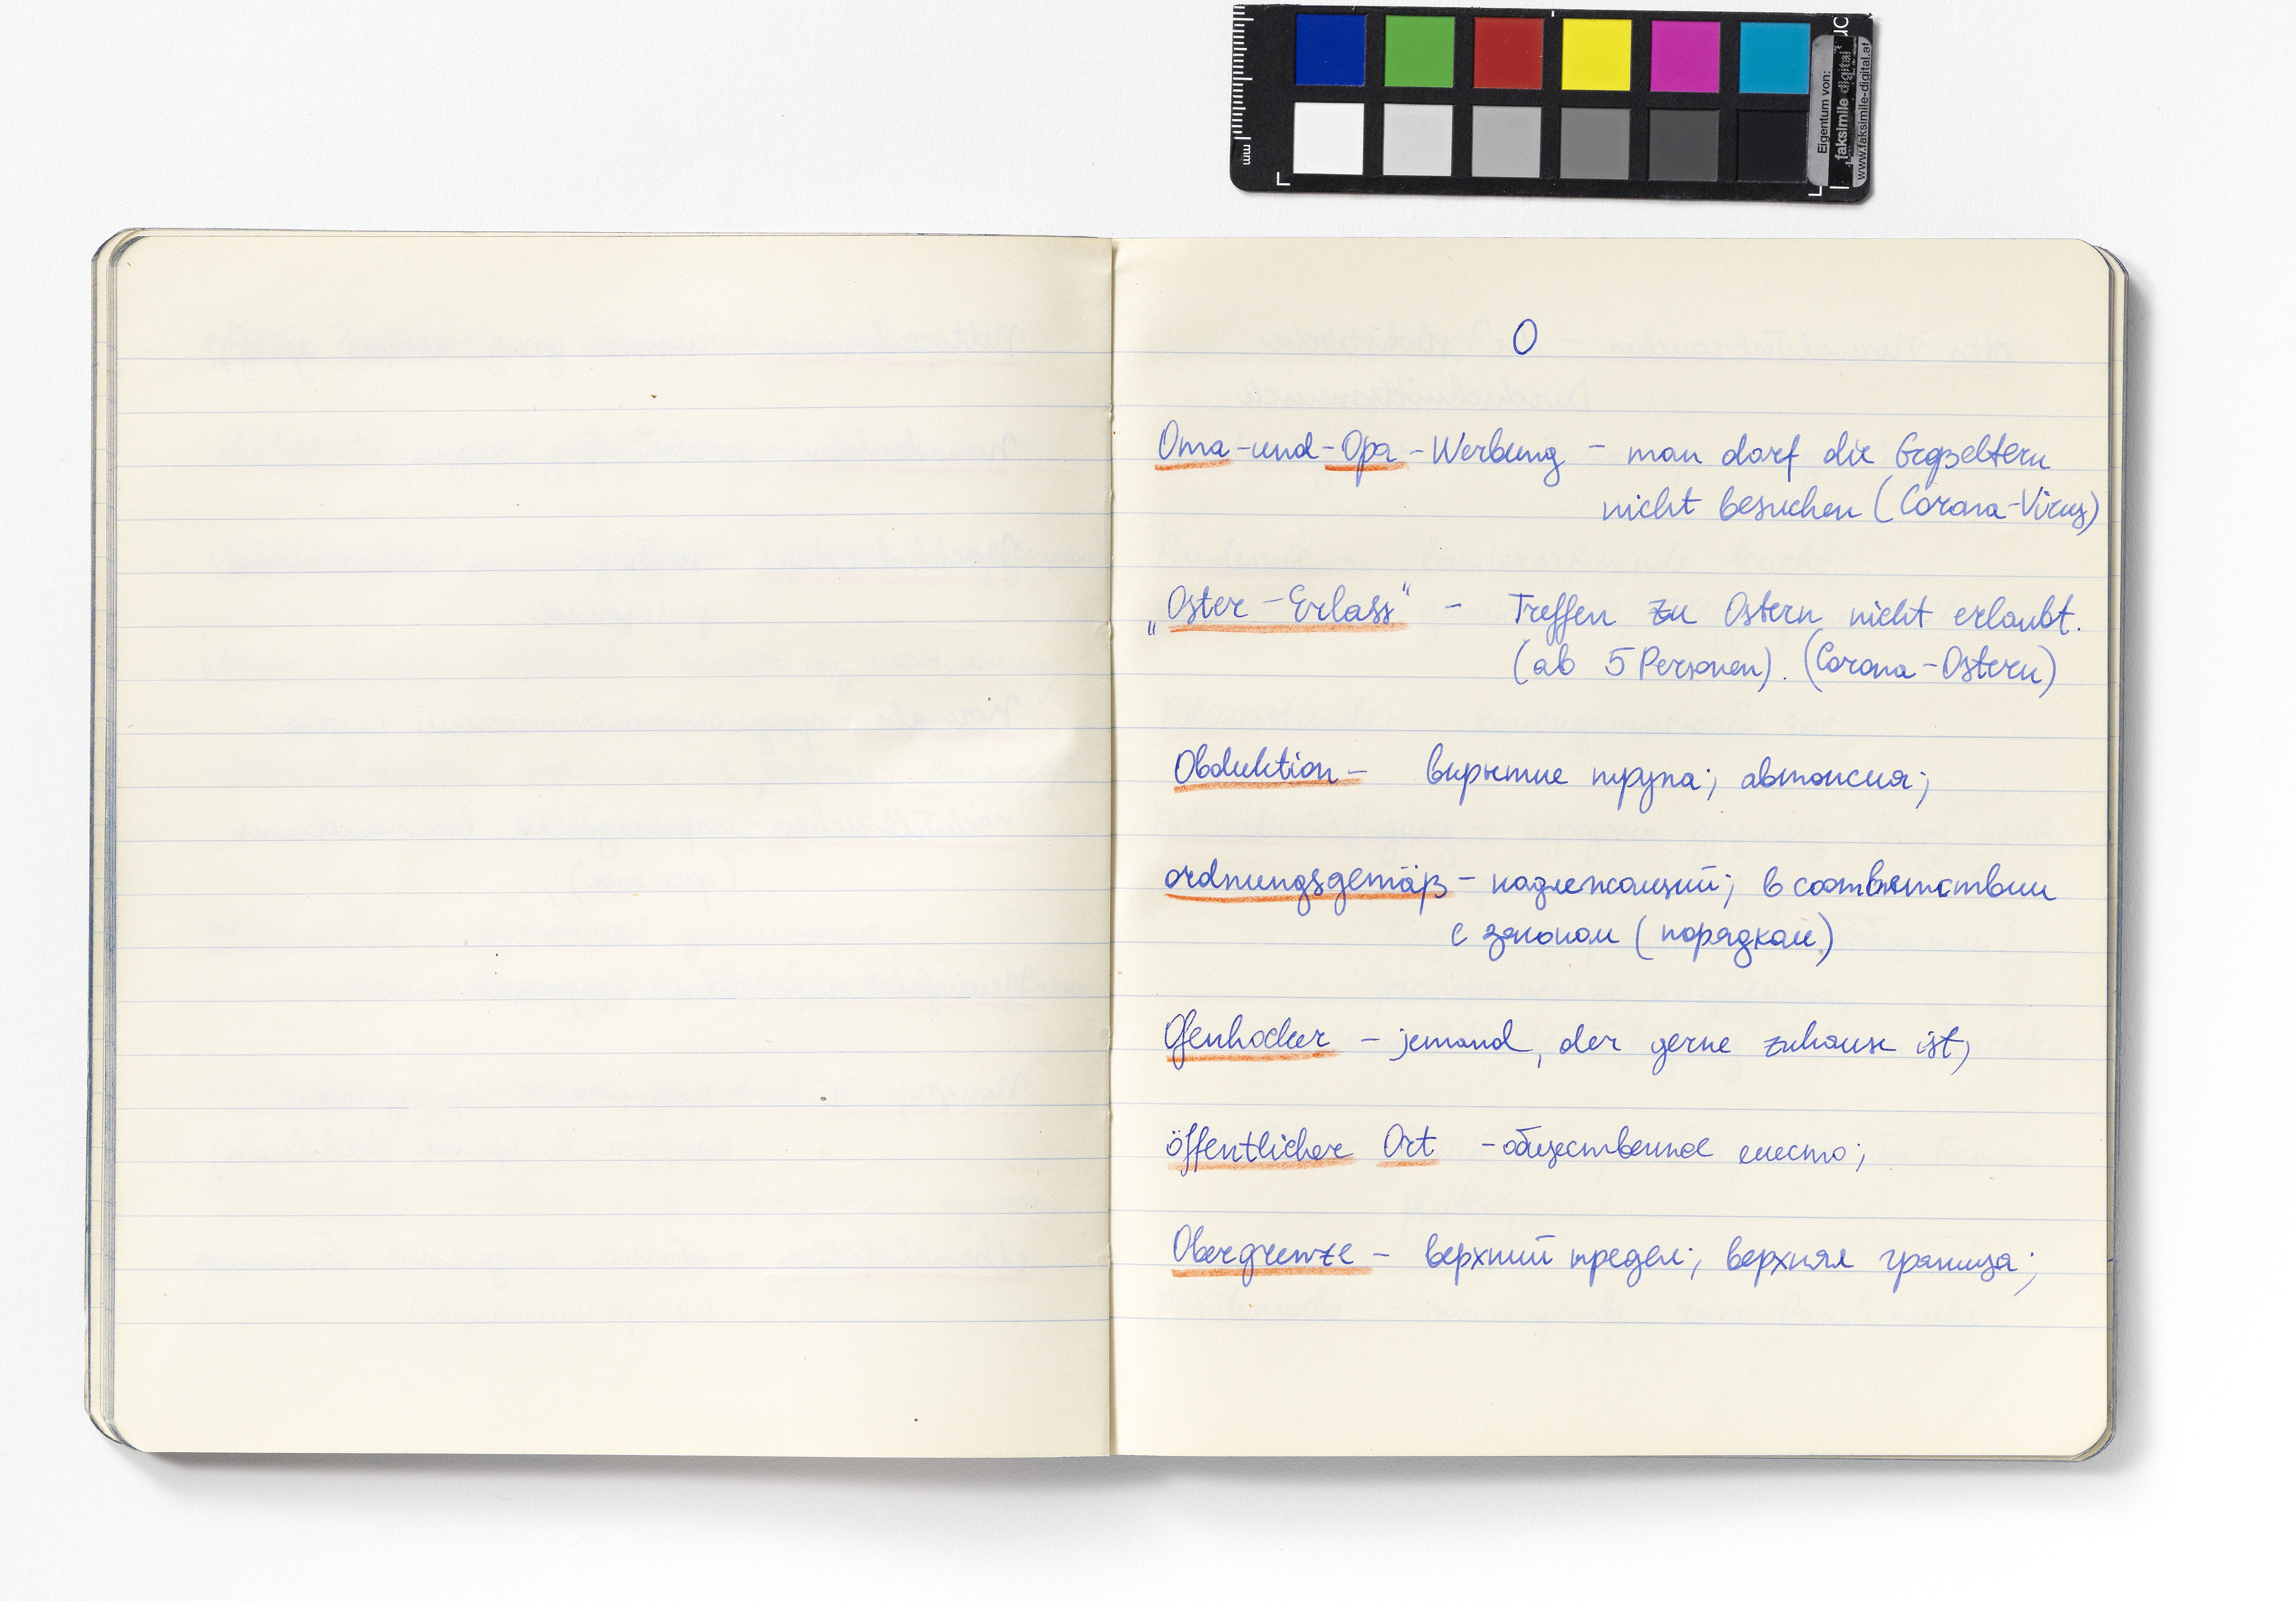 mm
Eigentum von:
faksimile digital
www.faksimile-digital.at
O
Oma-und-Opa-Werbung - man darf die Großeltern
nicht besuchen (Corona-Virus)
„Oster-Erlass" - Treffen zu Ostern nicht erlaubt.
(ab 5 Personen). (Corona-Ostern)
Obduktion - вирытие трупа; автопсия;
ordnungsgemäß - надлежащий; в соответствии
с законом (порядком)
Ofenhocker - jemand, der gerne zuhause ist;
öffentlicher Ort - общественное место;
Obergrenze - верхний предел; верхняя граница;